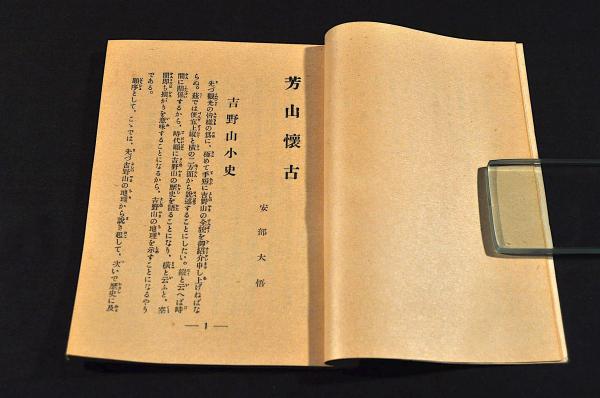 芳山懷古
安部大悟
吉野山小史
先づ觀光の皆樣の爲に、極めて手短に吉野山の全貌を御紹介申し上げねばな
らぬ。茲では便宜上縱と橫の二方面から說述することにしたい。縱と云へば時
間に關係するから、時代順に吉野山の歷史を語ることになり、橫と云ふと、空
間卽ち擴がりを意味することになるから、吉野山の地理を示すことになるやう
である。
順序として、こゝでは、先づ吉野山の地理から說き起して、次いで歷史に及
— 1 —